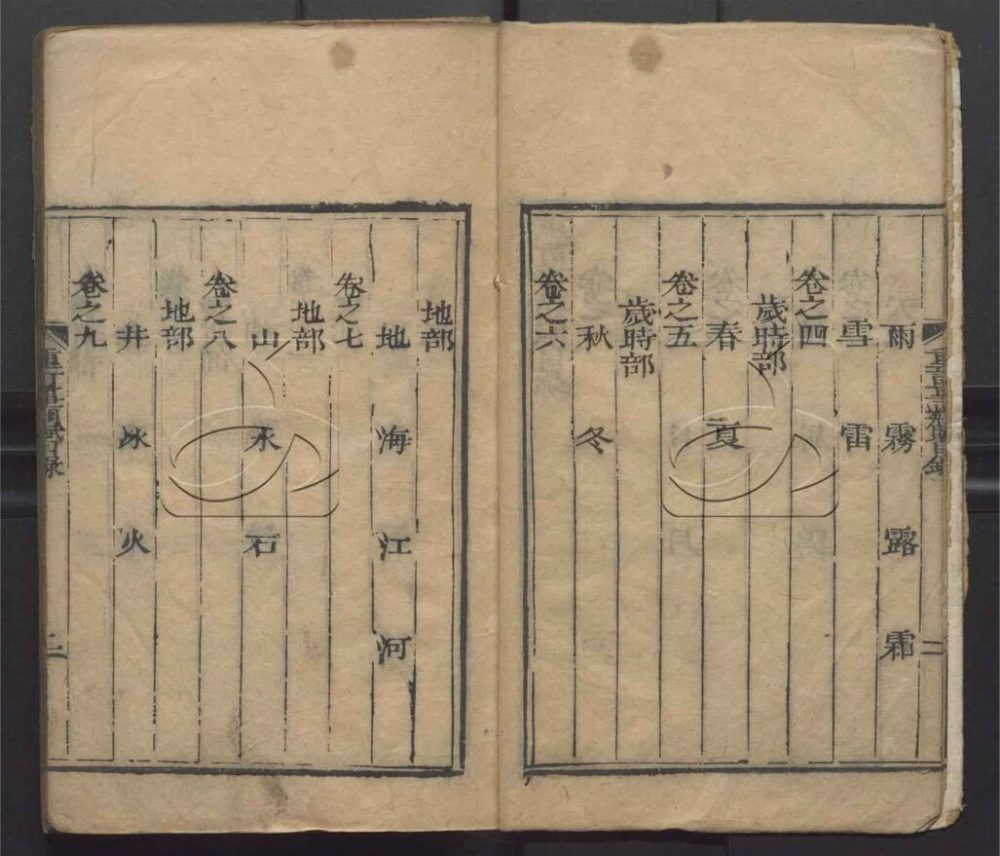 雨 霧 露 霜
雪 雷
卷之四
歲時部
春 夏
卷之五
歲時部
秋 冬
卷之六
地部
地 海 江 河
卷之七
地部
山 水 石
卷之八
地部
井 冰 火
卷之九